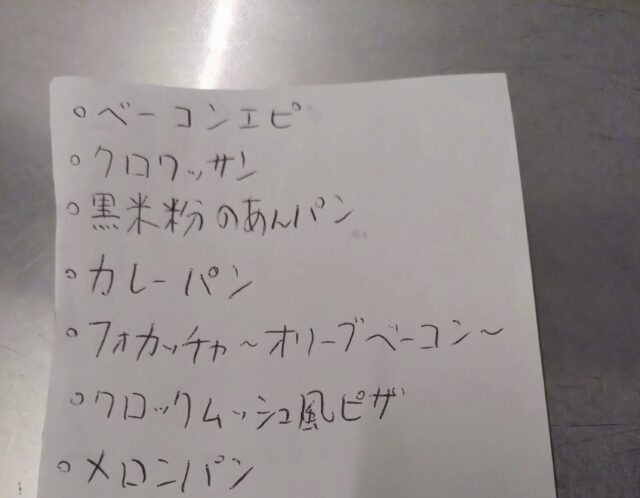 ○ベーコンエピ
○クロワッサン
○黒米粉のあんパン
○カレーパン
○フォカッチャ~オリーブベーコン~
○クロックムッシュ風ピザ
○メロンパン